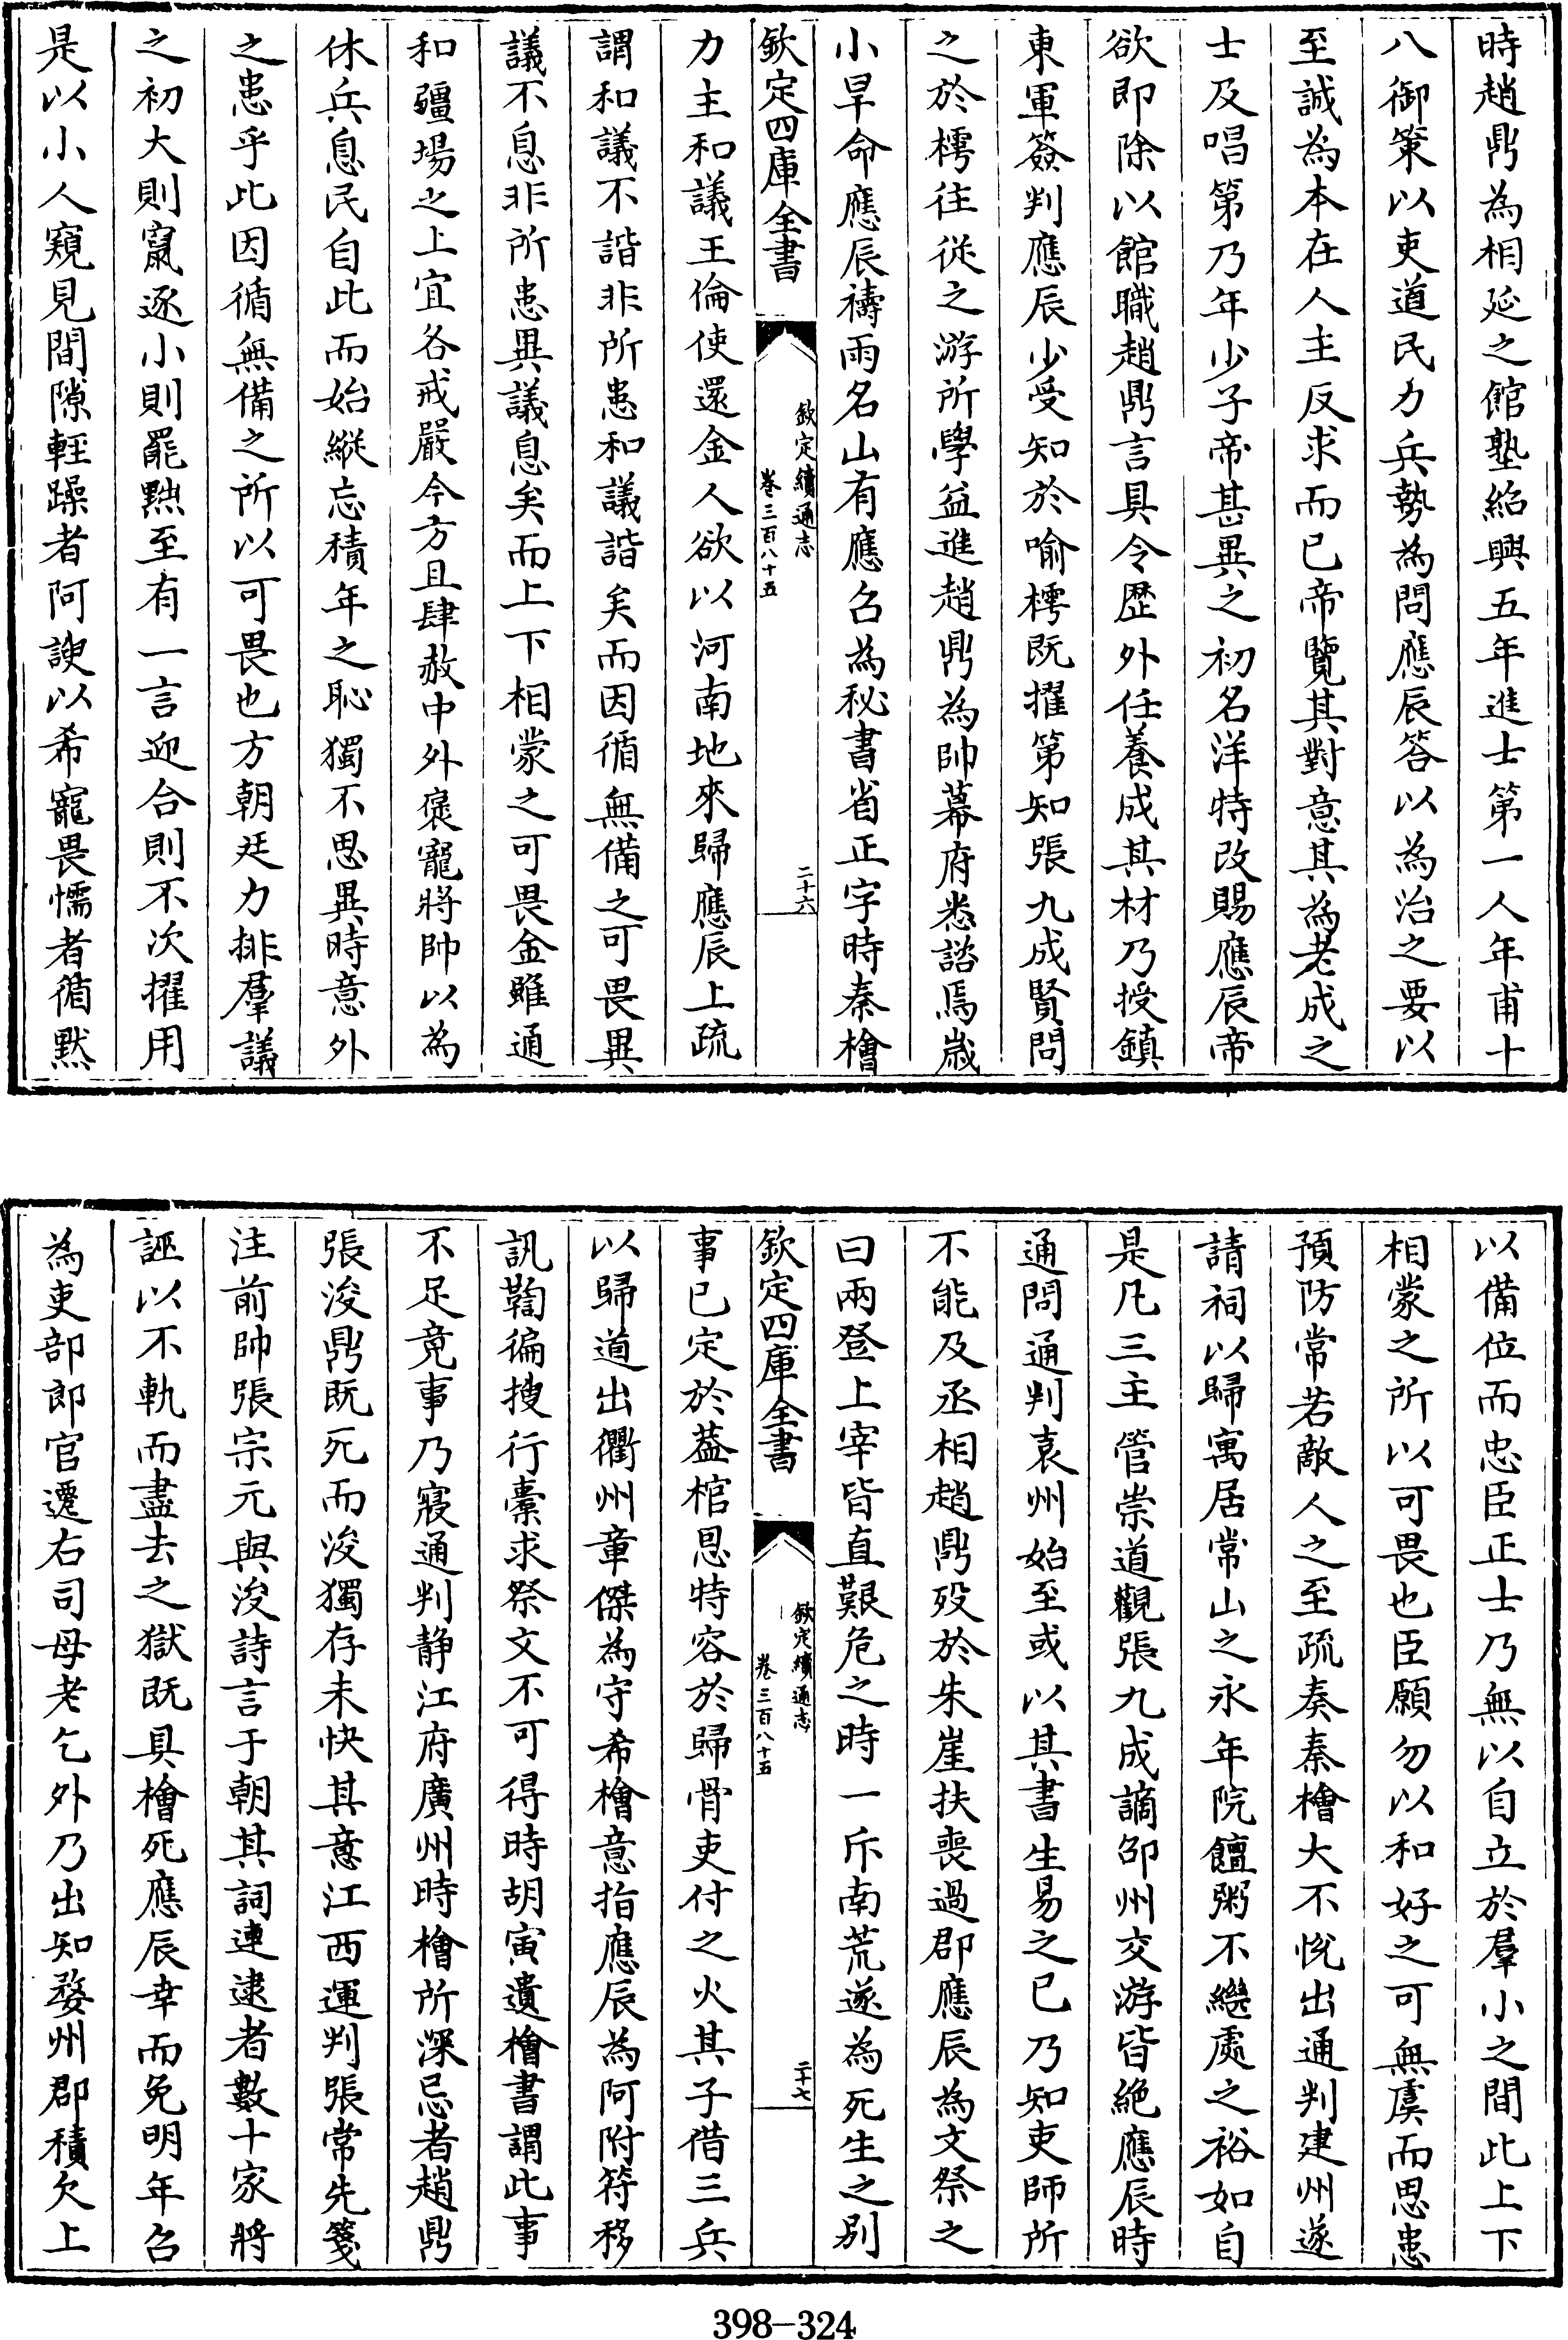 時趙鼎為相延之館塾紹興五年進士第一人年甫十
八御策以吏道民力兵勢為問應辰答以為治之要以
至誠為本在人主反求而已帝覽其對意其為老成之
士及唱第乃年少子帝甚異之初名洋特改賜應辰帝
欲即除以館職趙鼎言具令歷外任養成其材乃授鎮
東軍簽判應辰少受知於喻樗既擢第知張九成賢問
之於樗往從之游所學益進趙鼎為帥幕府悉諮焉歲
小旱命應辰禱雨名山有應召為秘書省正字時秦檜
欽定四庫全書
欽定續通志
卷三百八十五
二十六
力主和議王倫使還金人欲以河南地來歸應辰上疏
謂和議不諧非所患和議諧矣而因循無備之可畏異
議不息非所患異議息矣而上下相蒙之可畏金雖通
和疆場之上宜各戒嚴今方且肆赦中外褒寵將帥以為
休兵息民自此而始縱忘積年之恥獨不思異時意外
之患乎此因循無備之所以可畏也方朝廷力排羣議
之初大則竄逐小則罷黜至有一言迎合則不次擢用
是以小人窺見間隙輕躁者阿諛以希寵畏懦者循默
以備位而忠臣正士乃無以自立於羣小之間此上下
相蒙之所以可畏也臣願勿以和好之可無虞而思患
預防常若敵人之至疏奏秦檜大不悅出通判建州遂
請祠以歸寓居常山之永年院饘粥不繼處之裕如自
是凡三主管崇道觀張九成謫邵州交游皆絶應辰時
通問通判袁州始至或以其書生易之已乃知吏師所
不能及丞相趙鼎歿於朱崖扶喪過郡應辰為文祭之
曰兩登上宰皆直艱危之時一斥南荒遂為死生之别
欽定四庫全書
欽定續通志
卷三百八十五
二十七
事已定於葢棺恩特容於歸骨吏付之火其子借三兵
以歸道出衢州章傑為守希檜意指應辰為阿附符移
訊鞫徧搜行橐求祭文不可得時胡寅遺檜書謂此事
不足竟事乃寢通判静江府廣州時檜所深忌者趙鼎
張浚鼎既死而浚獨存未快其意江西運判張常先箋
注前帥張宗元與浚詩言于朝其詞連逮者數十家將
誣以不軌而盡去之獄既具檜死應辰幸而免明年召
為吏部郎官遷右司母老乞外乃出知婺州郡積欠上
398-324